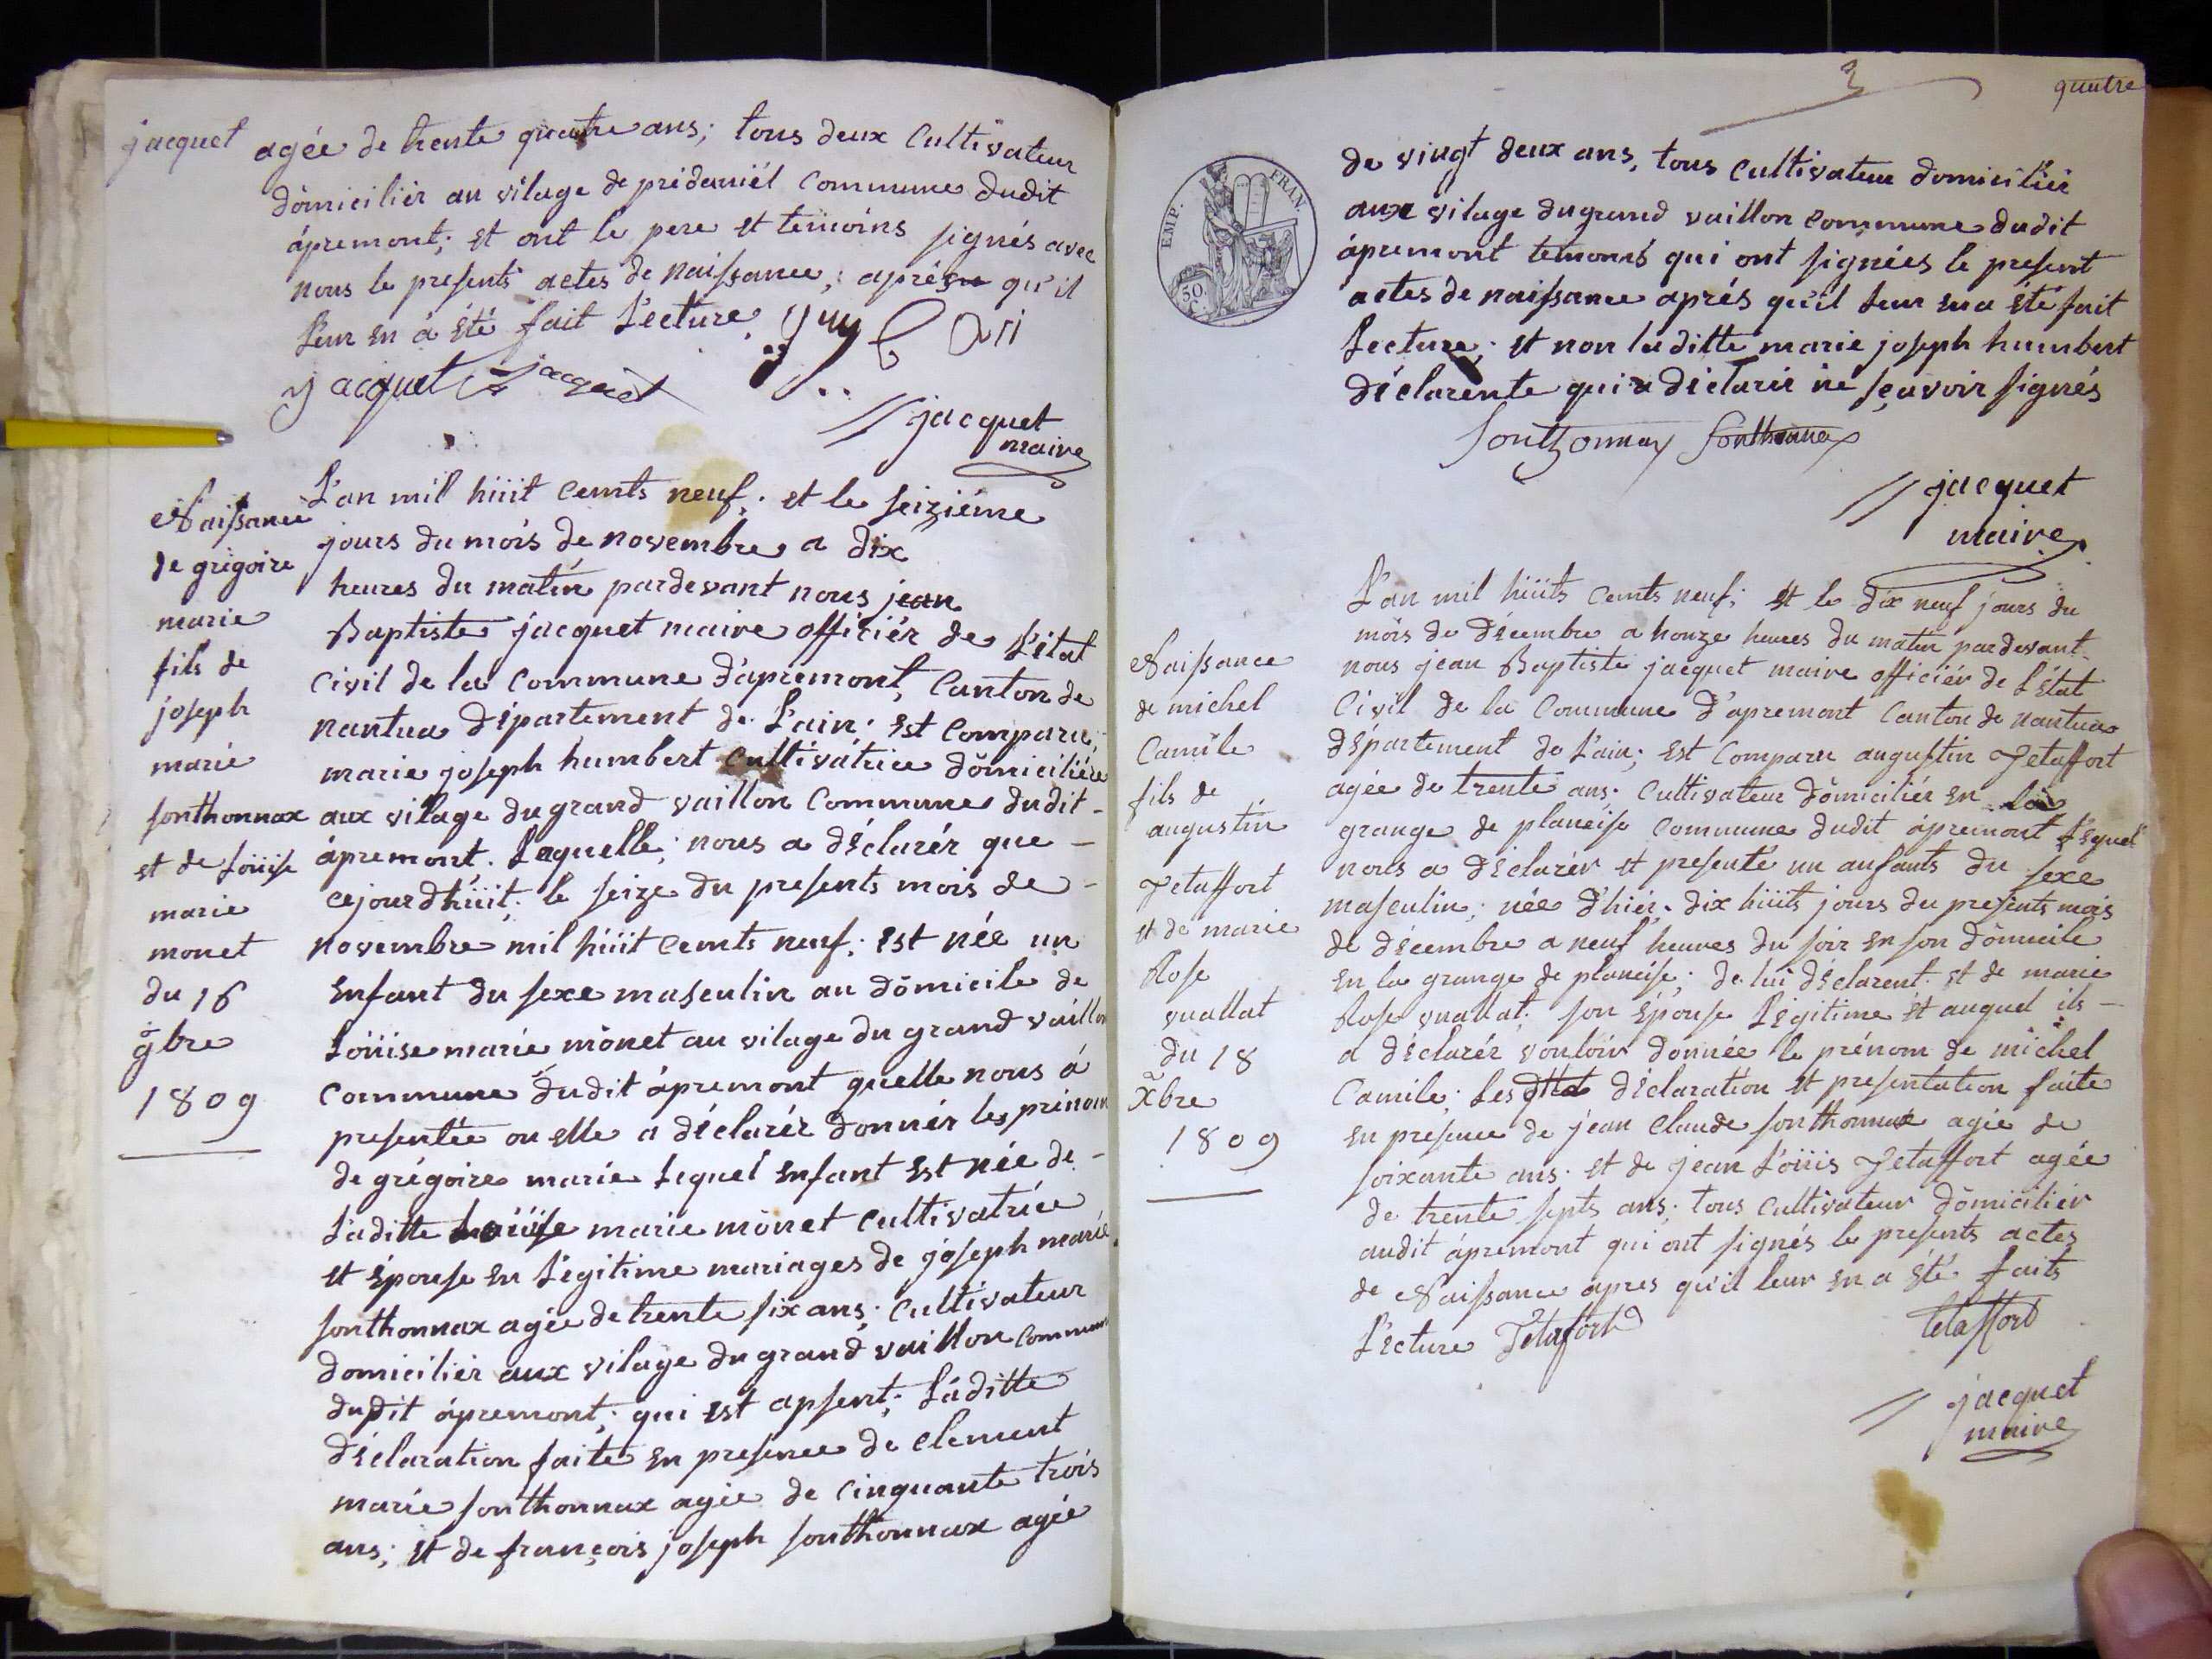 jacquet
agée de trente quatre ans; tous deux Cultivateur
dômiciliér au vilage de prédaniél Commune dudit
ápremont; et ont le pere et temoins signés avec
nous le presents actes de naissance; aprés qu'il
Leur en á été fait Lecture.
jacquet jacquet
jacquet
maire
Naissance
de grégoire
marie
fils de
joseph
marie
sonthonnax
et de Loüise
marie
monet
du 16
9bre
1809
L'an mil hüit cents neuf; et le seiziéme
jours du mois de novembre a dix
heures du matin pardevant nous jean
Baptiste jacquet maire officiér de L'état
Civil de la Commune d'apremont, Canton de
nantua département de L'ain; est Comparu,
marie joseph humbert Cultivatrice dômiciliére
aux vilage du grand vaillon Commune dudit
ápremont. Laquelle; nous a déclarér que
cejourdhüit; le seize du presents mois de
novembre mil hüit cents neuf; est née un
enfant du sexe masculin au dômicile de
Loüise marie mônet au vilage du grand vaillon
Commune dudit ápremont quelle nous á
presentée ou elle a déclarér donnér les prénom
de grégoire marie Lequel enfant est née de
Laditte Loüise marie mônet Cultivatrice
et épouse en Légitime mariages de joseph marie
sonthonnax agée de trente six ans; Cultivateur
domiciliér aux vilage du grand vaillon Commune
dudit ápremont; qui est apsent; Láditte
déclaration faite en presence de Clement
marie sonthonnax agée de cinquante trois
ans; et de françois joseph sonthonnax agée
3
quatre
EMP. FRAN.
50
C.
de vingt deux ans, tous Cultivateur domiciliér
aux vilage du grand vaillon Commune dudit
ápremont temoins qui ont signées le present
actes de naissance aprés qu'il Leur en a été fait
Lecture; et non laditte marie joseph humbert
déclarente qui a déclarér ne sçavoir signés
Sonthonnax Sonthonnax
jacquet
maire
Naissance
de michel
Camile
fils de
augustin
Jetaffort
et de marie
Rose
vuallat
du 18
Xbre
1809
L'an mil hüits cents neuf; et le dix neuf jours du
môis de décembre a honze heures du matin pardevant
nous jean Baptiste jacquet maire officiér de L'état
Civil de la Commune d'apremont Canton de nantua
département de L'ain; est Comparu augustin Jetaffort
agée de trente ans; Cultivateur dômiciliér en la
grange de planeise Commune dudit ápremont Lequel
nous a déclarér et presenté un anfants du sexe
masculin; née d'hiér dix hüits jours du presents mois
de décembre a neuf heures du soir en son dômicile
en la grange de planeise; de lui déclarent et de marie
Rose vuallat; son épouse Légitime et auquel ils
a déclarér vouloir donnée le prénom de michel
Camile; Les dites déclaration et presentation faite
en presence de jean Claude sonthonnax agée de
soixante ans; et de jean Loüis Jetaffort agée
de trente septs ans; tous Cultivateur dômiciliér
audit ápremont qui ont signés le presents actes
de Naissance apres qu'il leur en a été faits
Lecture Jetafort Tetaffort
jacquet
maire